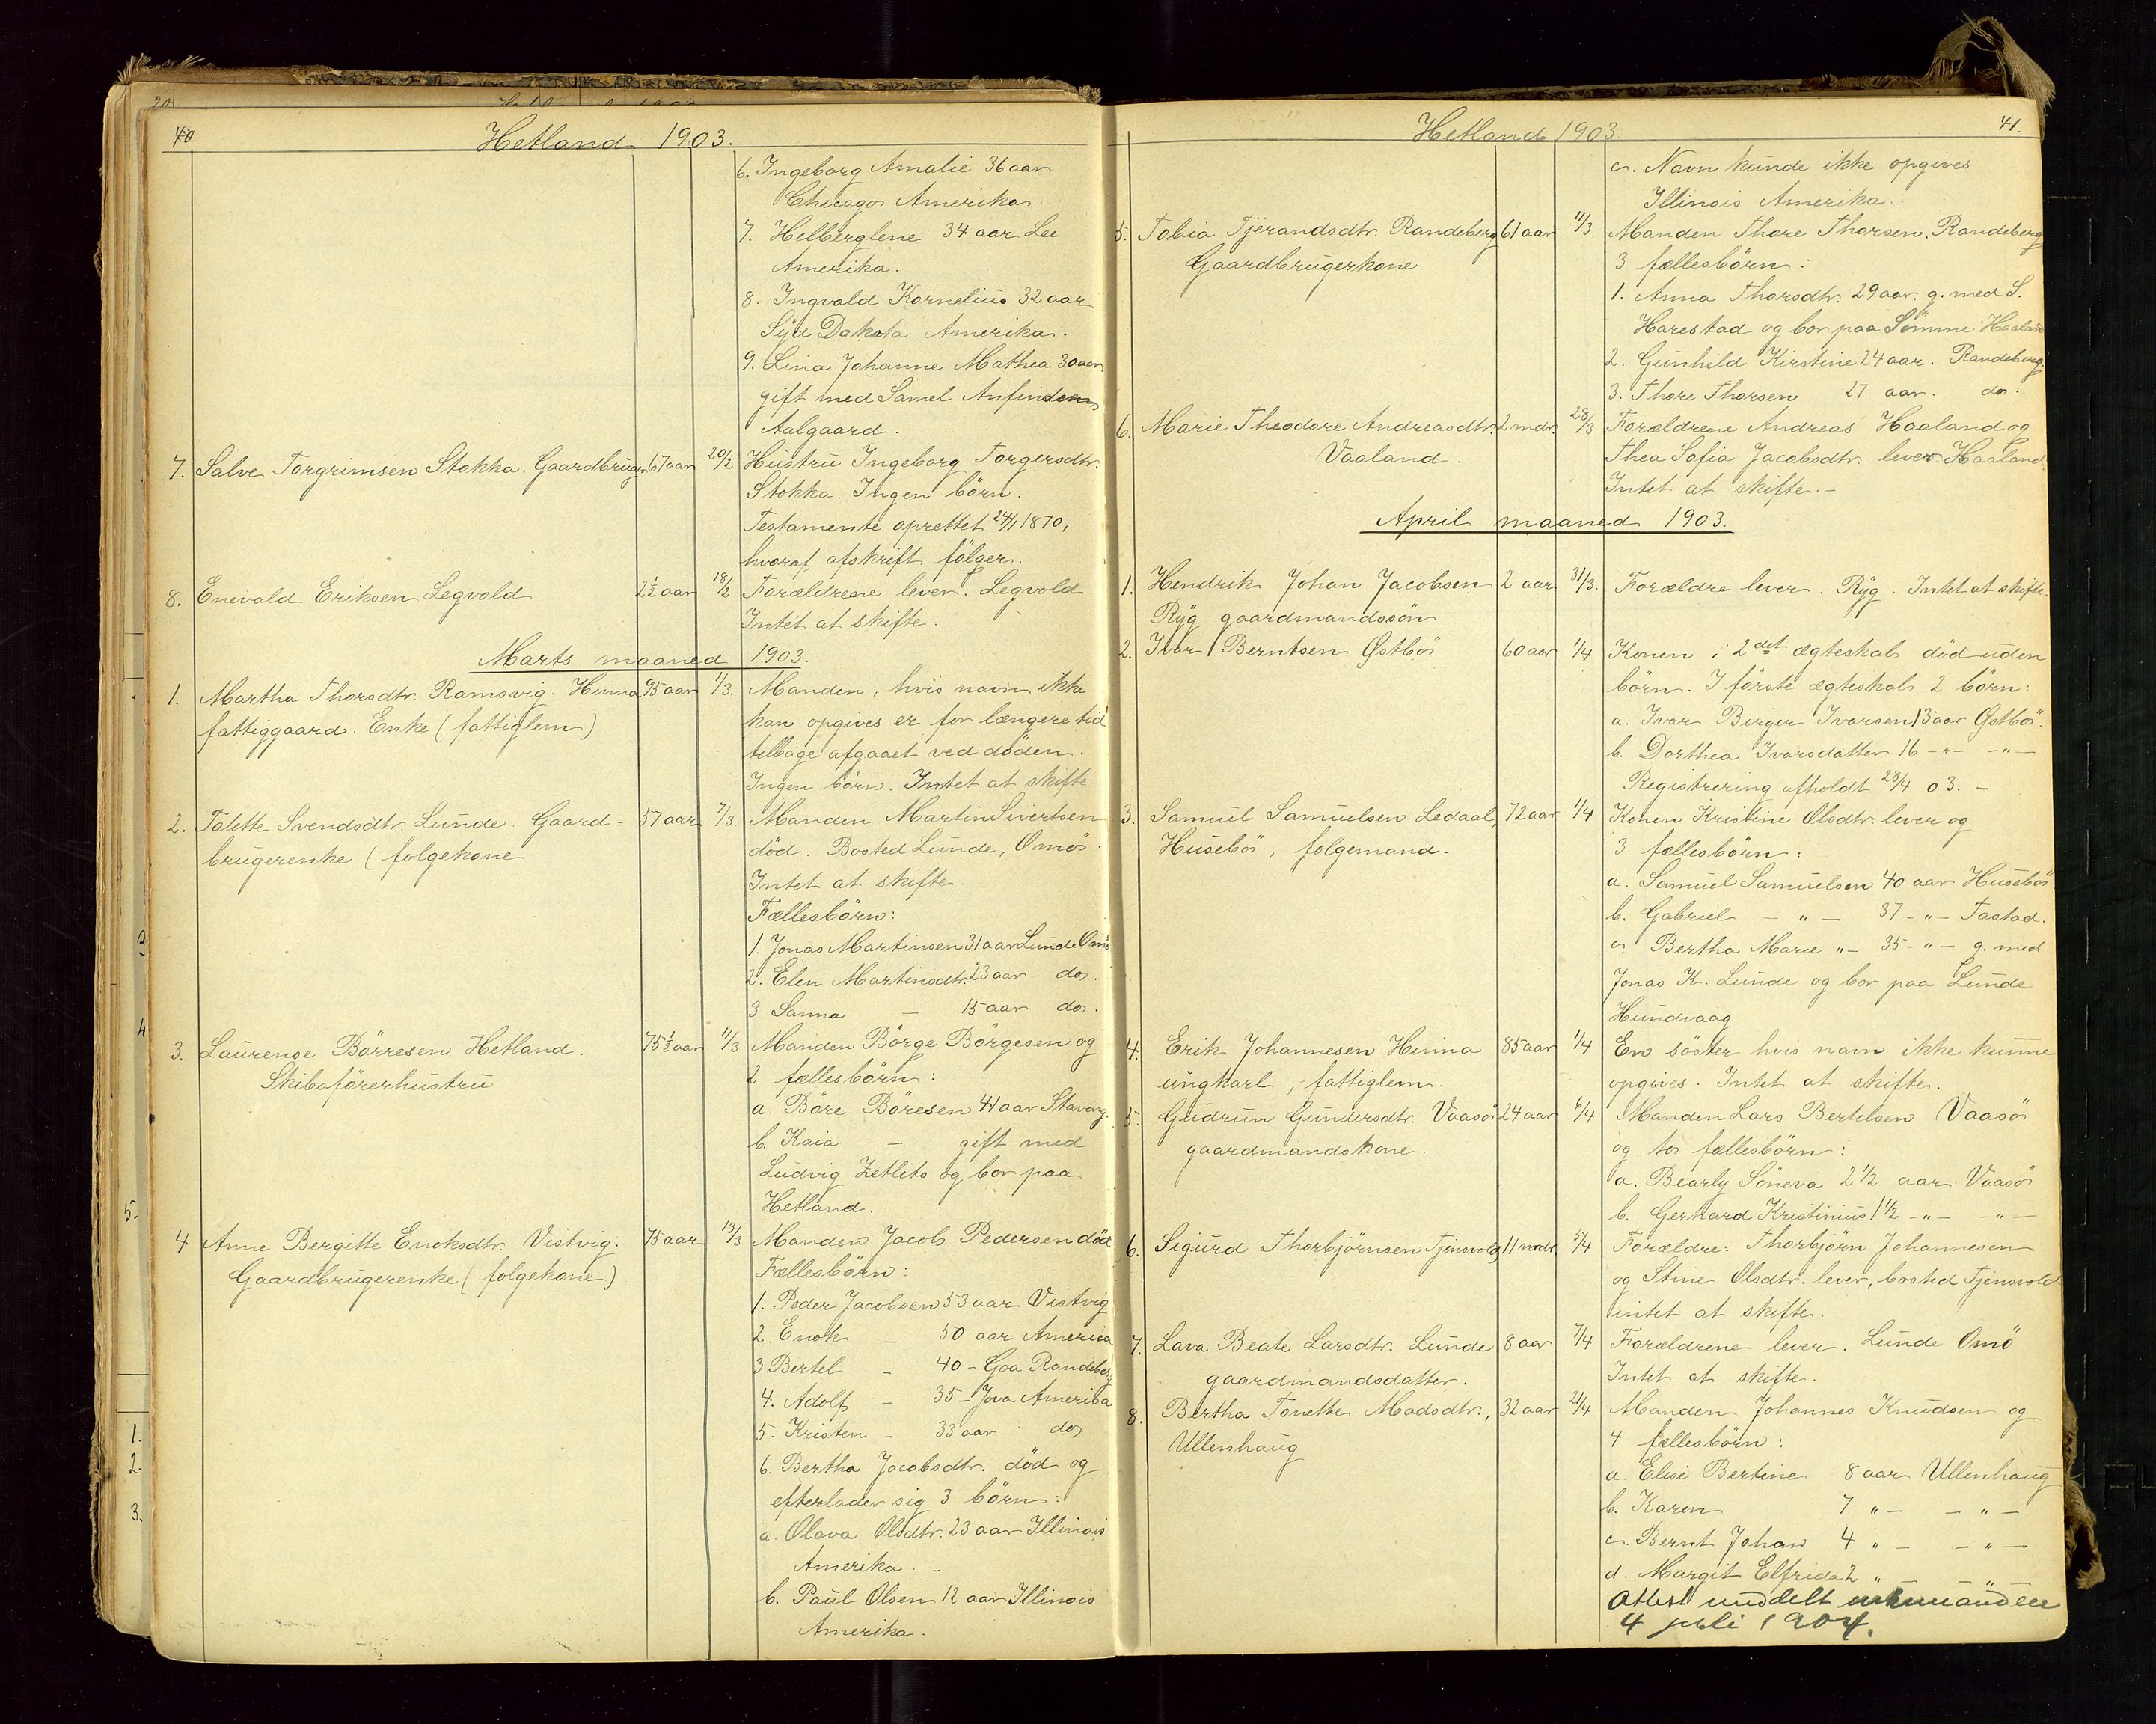 40.
Hetland 1903.
6. Ingeborg Amalie 36 aar
Chicago Amerika.
7. Helberglene 34 aar Lee
Amerika.
8. Ingvald Kornelius 32 aar
Syd Dakota Amerika.
9. Lina Johanne Mathea 30 aar
gift med Samel Anfindsen
Aalgaard.
7. Salve Torgrimsen Stokka. Gaardbruger 67 aar 20/2 Hustru Ingeborg Torgersdtr.
Stokka. Ingen börn.
Testamente oprettet 24/1 1870,
hvoraf afskrift fölger.
8. Enevald Eriksen Legvold 2 1/2 aar 18/2 Forældrene lever. Legvold
Intet at skifte.
Marts maaned 1903.
1. Martha Thorsdtr. Ramsvig. Hinna 95 aar 1/3. Manden, hvis navn ikke
fattiggaard. Enke (fattiglem) kan opgives er for længere tid
tilbage afgaaet ved döden.
Ingen börn. Intet at skifte.
2. Talette Svendsdtr. Lunde. Gaard= 57 aar 7/3. Manden Martin Sivertsen
brugerenke (folgekone död. Bosted Lunde, Omö.
Intet at skifte.
Fællesbörn:
1. Jonas Martinsen 31 aar Lunde Omö
2. Elen Martinsdtr. 23 aar do.
3. Sanna - 15 aar do.
3. Laurense Börresen Hetland. 75 1/2 aar 11/3 Manden Börge Börgesen og
Skibsförerhustru 2 fællesbörn:
a. Böre Böresen 41 aar Stavang.
b. Kaia - gift med
Ludvig Zetlits og bor paa
Hetland.
4 Anne Bergitte Enoksdtr. Vistvig. 75 aar 13/3 Manden Jacob Pedersen död
Gaardbrugerenke (folgekone) Fællesbörn:
1. Peder Jacobsen 53 aar Vistvig
2. Enok - 50 aar America
3 Bertel - 40 - Goa Randeberg
4. Adolf - 35 - Jova America
5. Kristen - 33 aar do
6. Bertha Jacobsdtr. död og
efterlader sig 3 börn:
a. Olava Olsdtr. 23 aar Illinois
Amerika. -
b. Paul Olsen 12 aar Illinois
Amerika.
Hetland 1903.
41.
c. Navn kunde ikke opgives
Illinois Amerika.
5. Tobia Tjerandsdtr. Randeberg 61 aar 11/3 Manden Thore Thorsen. Randeberg
Gaardbrugerkone 3 fællesbörn:
1. Anna Thorsdtr. 29 aar. g. med S.
Harestad og bor paa Sömme i Haaland
2. Gunhild Kirstine 24 aar. Randeberg.
3. Thore Thorsen 27 aar. do.
6. Marie Theodore Andreasdtr. 2 mdr. 28/3 Forældrene Andreas Haaland og
Vaaland. Thea Sofia Jacobsdtr. lever Haaland.
Intet at skifte. -
April maaned 1903.
1. Hendrik Johan Jacobsen 2 aar 31/3. Forældre lever. Ryg. Intet at skifte.
Ryg gaardmandssön
2. Ivar Berntsen Østbö 60 aar 1/4 Konen i 2det ægteskab död uden
börn. I förste ægteskab 2 börn:
a. Ivar Birger Ivarsen 13 aar Østbö.
b. Dorthea Ivarsdatter 16 -"- -"-
Registrering afholdt 28/4 03. -
3. Samuel Samuelsen Ledaal, 72 aar 1/4 Konen Kristine Olsdtr. lever og
Husebö, folgemand. 3 fællesbörn:
a. Samuel Samuelsen 40 aar Husebö
b. Gabriel - " - 37 - " - Tastad.
c. Bertha Marie " - 35 - " - g. med
Jonas K. Lunde og bor paa Lunde
Hundvaag
4. Erik Johannesen Hinna 85 aar 1/4 En söster hvis navn ikke kunne
ungkarl, fattiglem. opgives. Intet at skifte.
5. Gudrun Gundersdtr. Vaasö 24 aar 6/4 Manden Lars Bertelsen Vaasö
gaardmandskone. og to fællesbörn:
a. Bearly Söneva 2 1/2 aar Vaasö
b. Gerhard Kristinius 1 1/2 -"- -"-
6. Sigurd Thorbjörnsen Tjensvold 11 mdr. 5/4 Forældre: Thorbjörn Johannesen
og Stine Olsdtr. lever, bosted Tjensvold
intet at skifte.
7. Lava Beate Larsdtr. Lunde 8 aar 7/4 Forældrene lever. Lunde Omö
gaardmandsdatter. Intet at skifte.
8. Bertha Tonette Madsdtr., 32 aar 21/4 Manden Johannes Knudsen og
Ullenhaug 4 fællesbörn:
a. Elise Bertine 8 aar Ullenhaug
b. Karen 7 " - - " -
c. Bernt Johan 4 " - - " -
d. Margit Elfrida 2 " "
Attest meddelt
4 juli 1904.
3
4
5.
1.
2.
3.